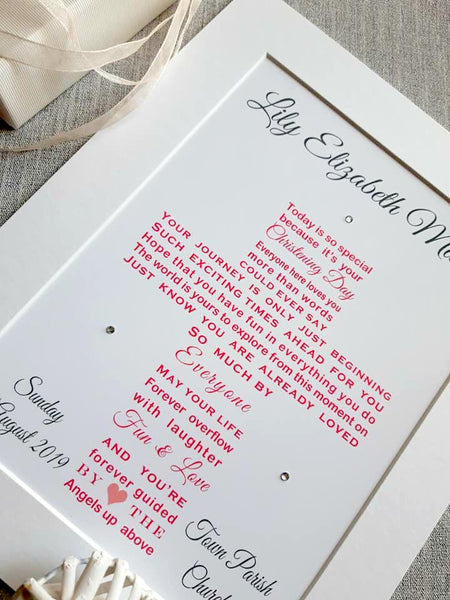 Lily Elizabeth
Today is so special
because it's your
Christening Day
Everyone here loves you
more than words
COULD EVER SAY
YOUR JOURNEY IS ONLY JUST BEGINNING
SUCH EXCITING TIMES AHEAD FOR YOU
Hope that you have fun in everything you do
The world is yours to explore from this moment on
JUST KNOW YOU ARE ALREADY LOVED
SO MUCH BY
Everyone
MAY YOUR LIFE
Forever overflow
with laughter
Fun & Love
AND YOU'RE
forever guided
BY THE
Angels up above
Sunday
August 2019
Town Parish
Church